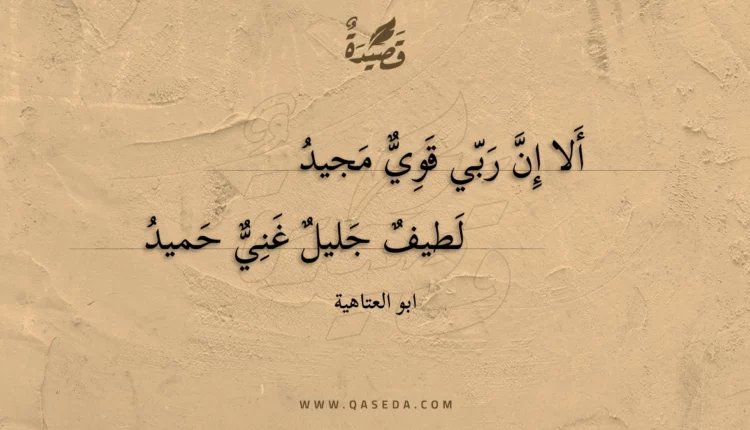 قَصِيدَةٌ
أَلا إِنَّ رَبّي قَوِيٌّ مَجيدُ
لَطيفٌ جَليلٌ غَنِيٌّ حَميدُ
ابو العتاهية
WWW.QASEDA.COM